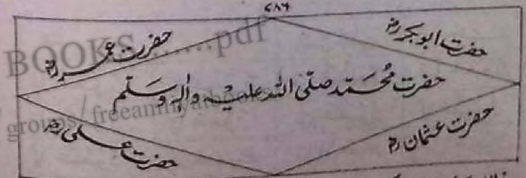 ۷۸۶
حضرت ابوبکر رضہ
حضرت عمر رضہ
حضرت مُحَمّد صلّی اللہ علیہ واٰلہٖ وسلّم
حضرت عثمان رضہ
حضرت علی رضہ
BOOKS........pdf
groups/freeamliyatbooks